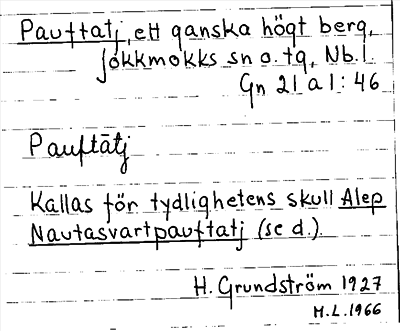 Pauftatj, ett ganska högt berg,
Jokkmokks sn o. tg, Nb. l.
Gn 21 a 1 : 46
Pauftātj
Kallas för tydlighetens skull Alep
Nautasvartpauftatj (se d.).
H. Grundström 1927
M.L. 1966